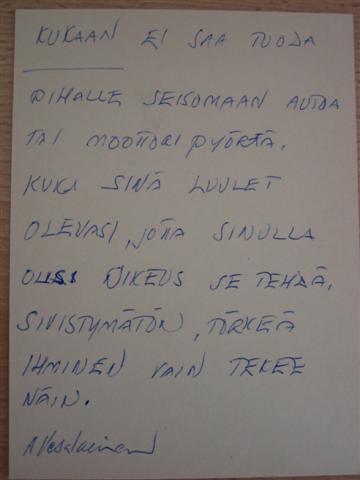 KUKAAN EI SAA TUODA
PIHALLE SEISOMAAN AUTOA
TAI MOOTTORIPYÖRÄÄ.
KUKA SINÄ LUULET
OLEVASI, JOTTA SINULLA
OLISI OIKEUS SE TEHDÄ.
SIVISTYMÄTÖN, TÖRKEÄ
IHMINEN VAIN TEKEE
NÄIN.